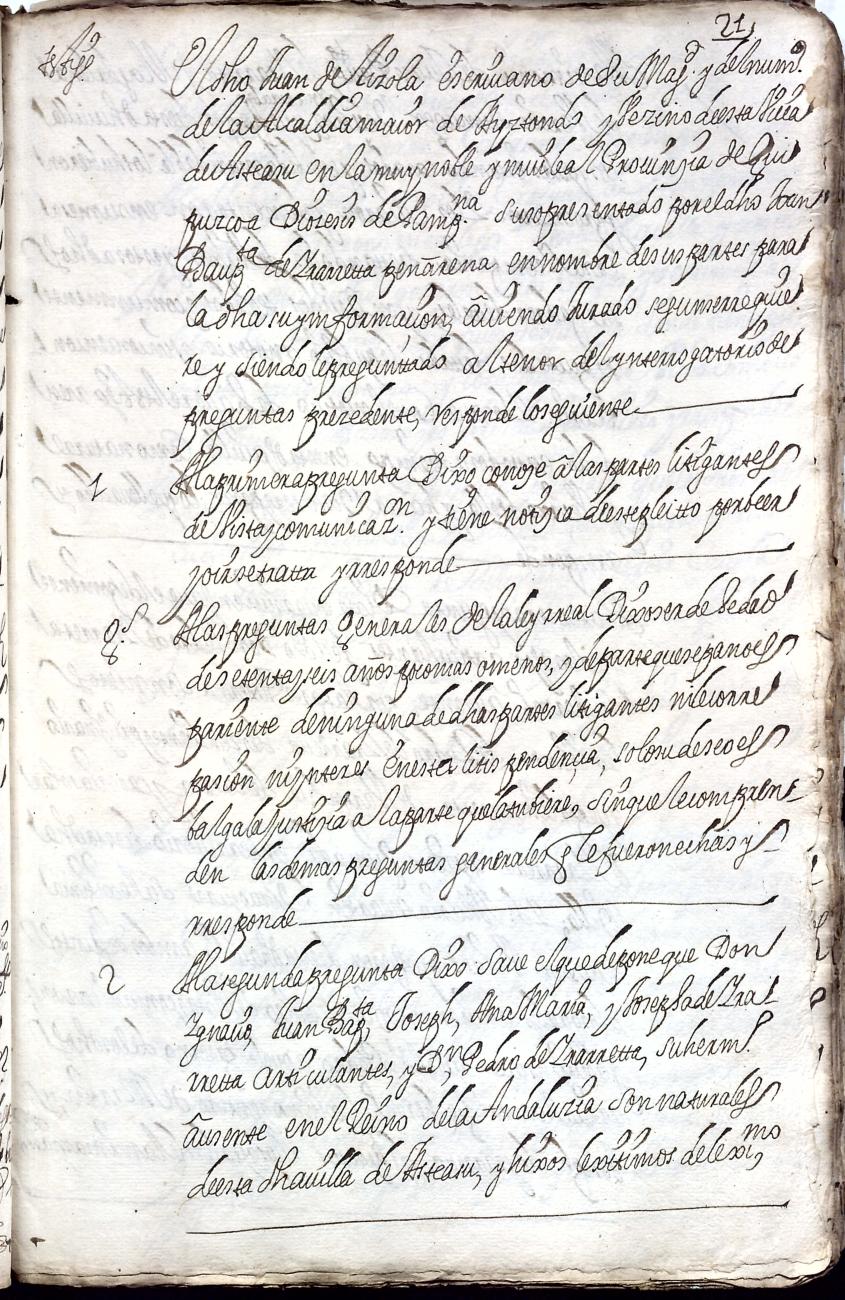 21
tstgo
El dho Juan de Aizola escriuano de Su Magd y del numo
de la Alcaldia maior de Ayztondo y Vezino de esta Villa
de Asteasu en la muy noble y mui leal Prouinzia de Gui
puzcoa Diozesis de Pampna susopresentado por el dho Juan
Baupta de Zrarretta penarena en nombre de sus partes para
la dha su ynformazion, auiendo Jurado segun se rrequie
re y siendole preguntado al tenor del ynterrogatorio de
preguntas prezedente, responde lo seguiente
1 A la primera pregunta Dixo conoze a las partes litigantes
de Vista y comunicazn y tiene notizia de este pleitto por beer
y oir se tratta y rresponde
Gs A las preguntas Generales de la ley rreal Dixo ser de hedad
de setenta y seis años poco mas o menos, y de parte que sepa no es
pariente de ninguna de dhas partes litigantes ni le corre
pasion ni ynteres en esta litis pendencia, solo su deseo es
balga la justizia a la parte que la tubiere, sin que le compren-
den las demas preguntas generales q le fueron echas y
rresponde
2 A la segunda pregunta Dixo saue el que depone que Don
Ygnacio, Juan Bapta, Joseph, Ana Maria, y Josepha de Zra-
rretta articulantes, y Dn Pedro de Zrarretta, su hermo
ausente en el Reino de la Andaluzia son naturales
de esta dha uilla de Asteasu, y hixos lexitimos de lexmo